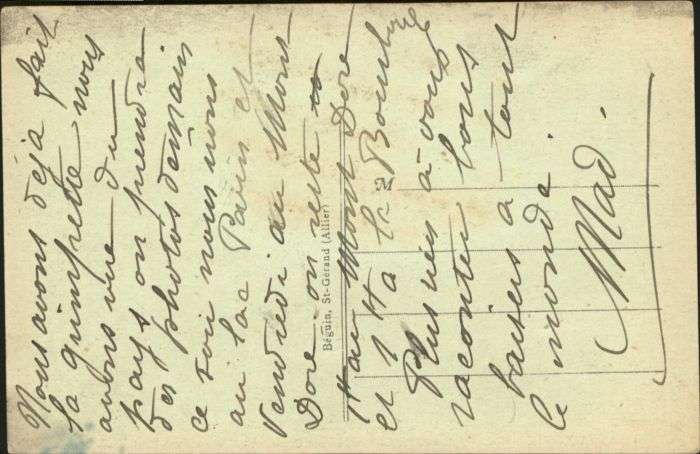 Nous avons déjà fait
la grimpette nous
avons vue du
pays on prendra
des photos demain
ce soir nous nous
au lac Pavin et
Vendredi au Mont
Dore on reste
au Mont Dore
et 1 H a la Bourboule
Plus rien à vous
raconter bons
baisers a tout
le monde.
Mad.
Béguin, St-Gérand (Allier)